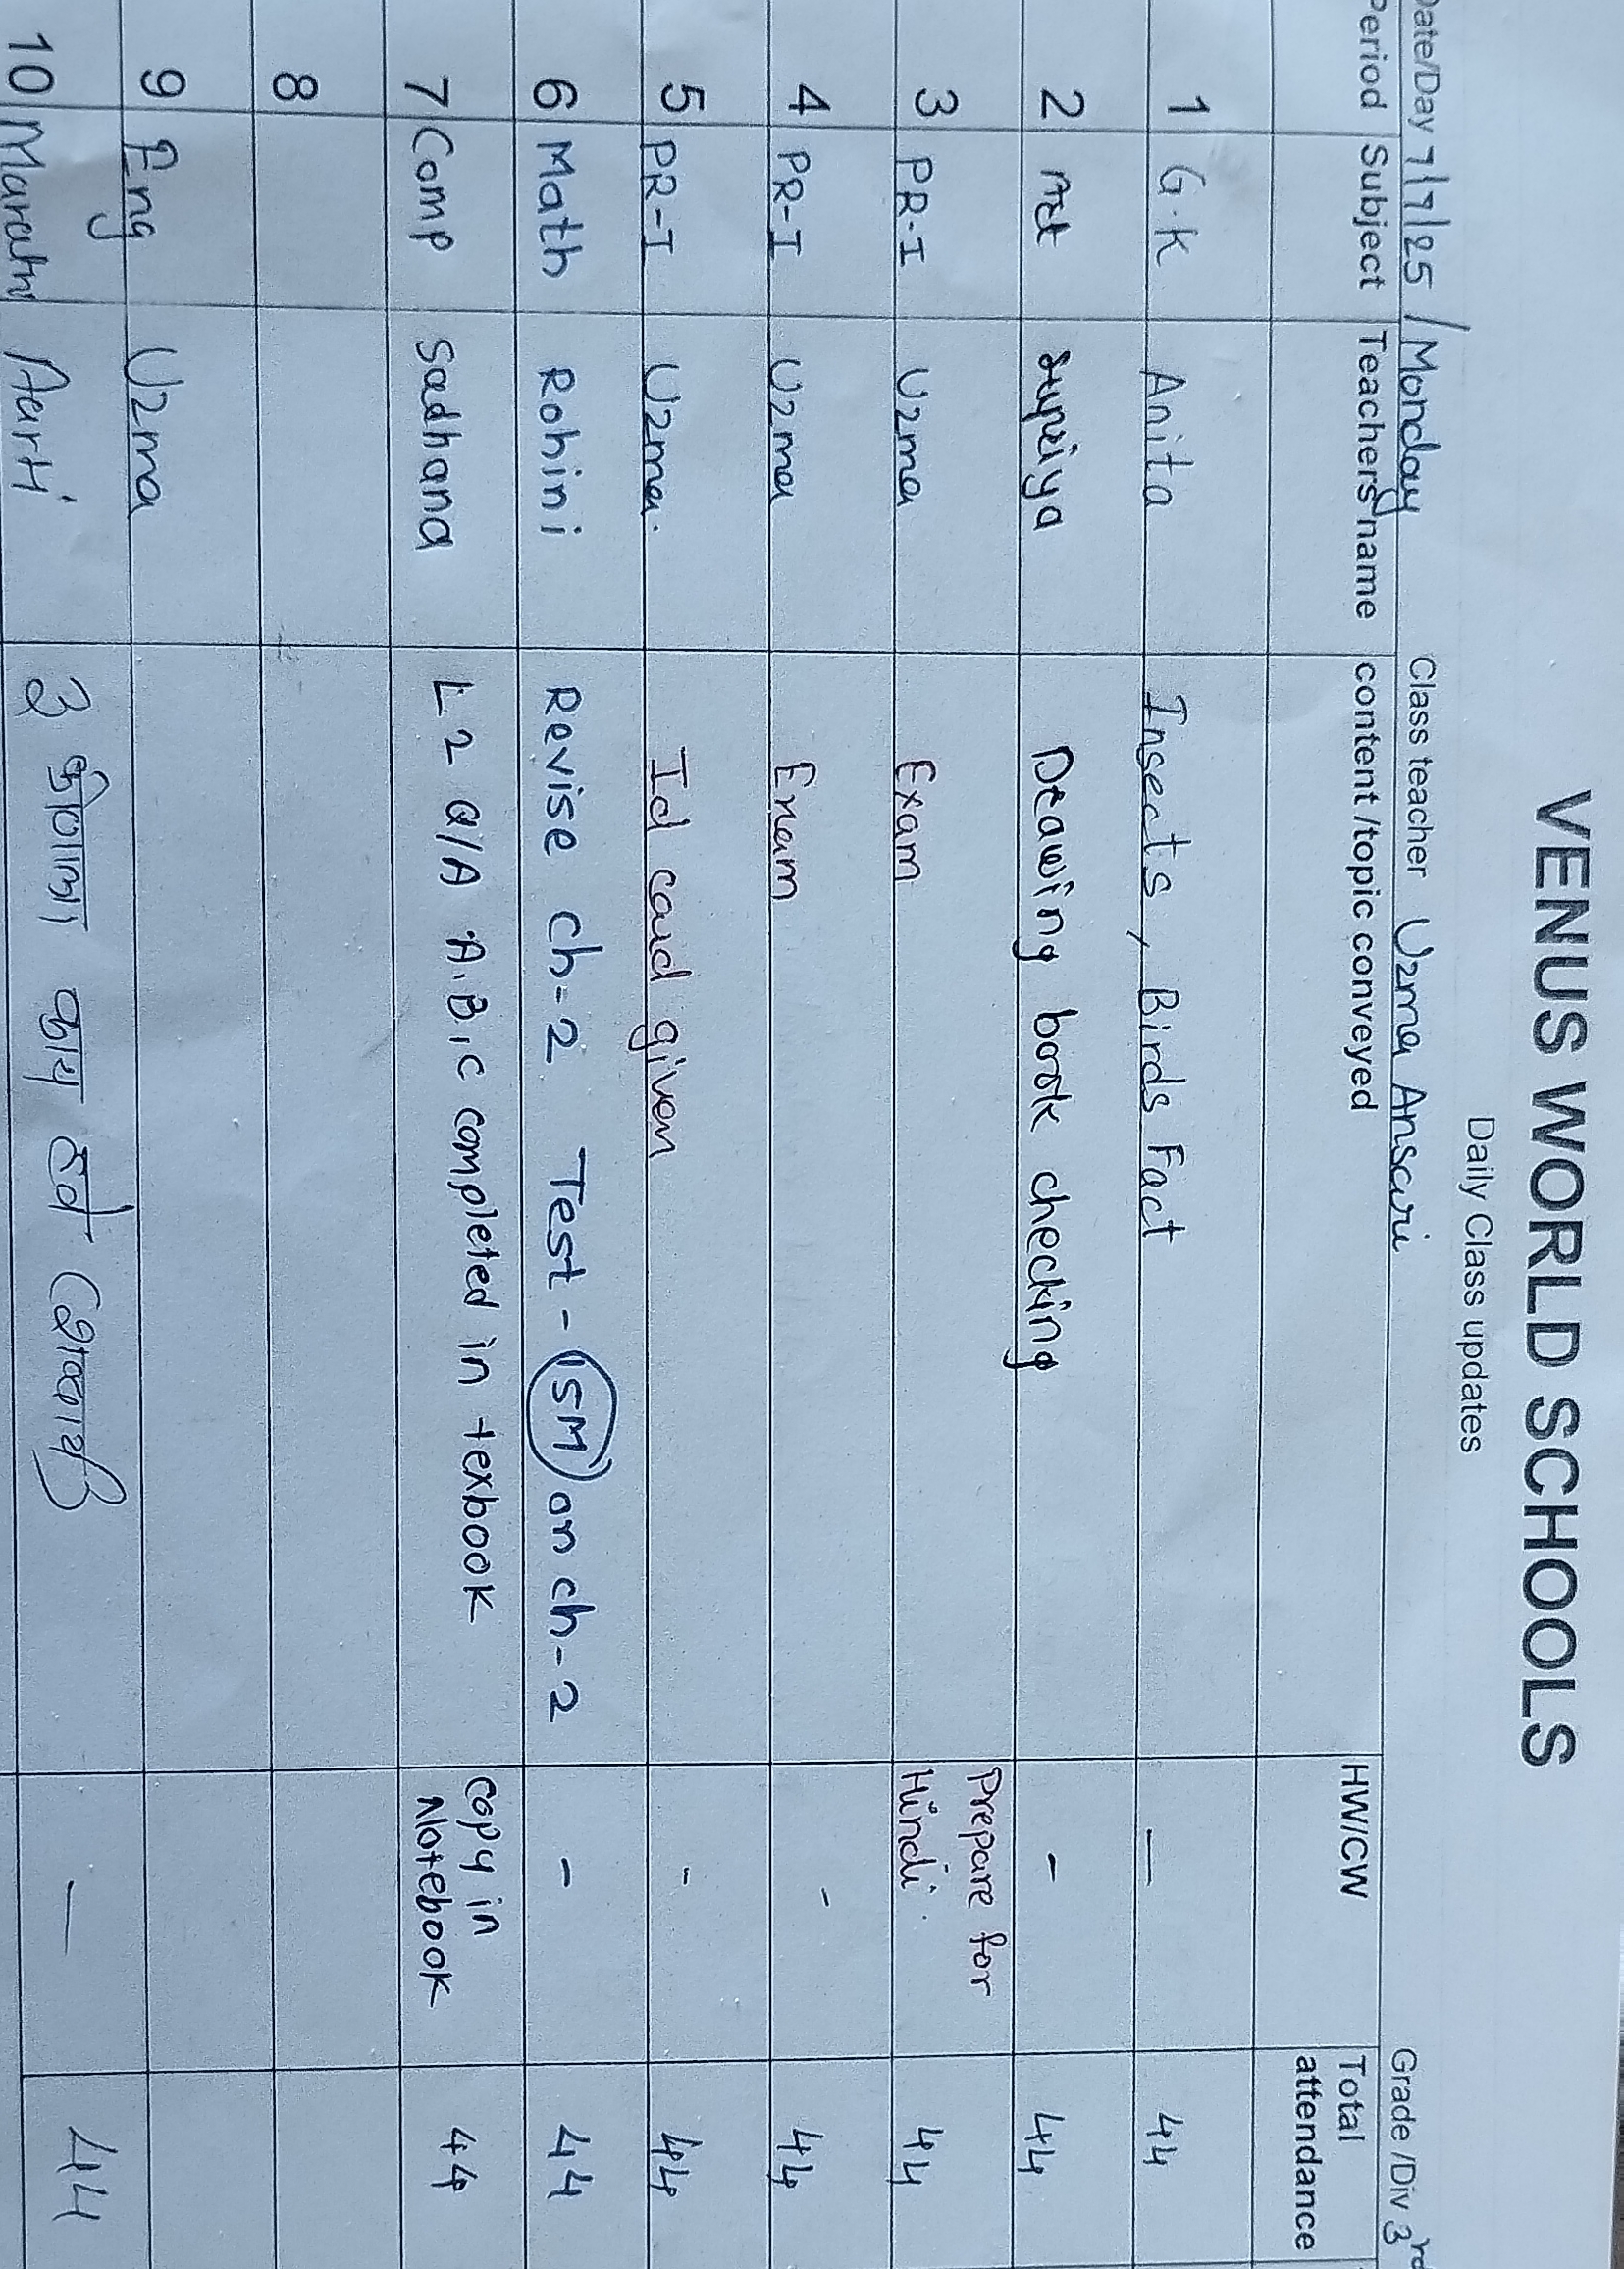 VENUS WORLD SCHOOLS
Daily Class updates
Date/Day 7/7/25 / Monday Class teacher Uzma Ansari Grade /Div 3rd
Period Subject Teachers name content /topic conveyed HW/CW Total attendance
1 G.K Anita Insects, Birds Fact — 44
2 Art Supriya Drawing book checking - 44
3 PR-I Uzma Exam Prepare for Hindi. 44
4 PR-I Uzma Exam - 44
5 PR-I Uzma. Id card given - 44
6 Math Rohini Revise ch-2 Test - 15M on ch-2 - 44
7 Comp Sadhana L 2 Q/A A,B,C completed in texbook copy in Notebook 44
8
9 Eng Uzma
10 Marathi Aarti 3 कोणाला काय हवं — 44